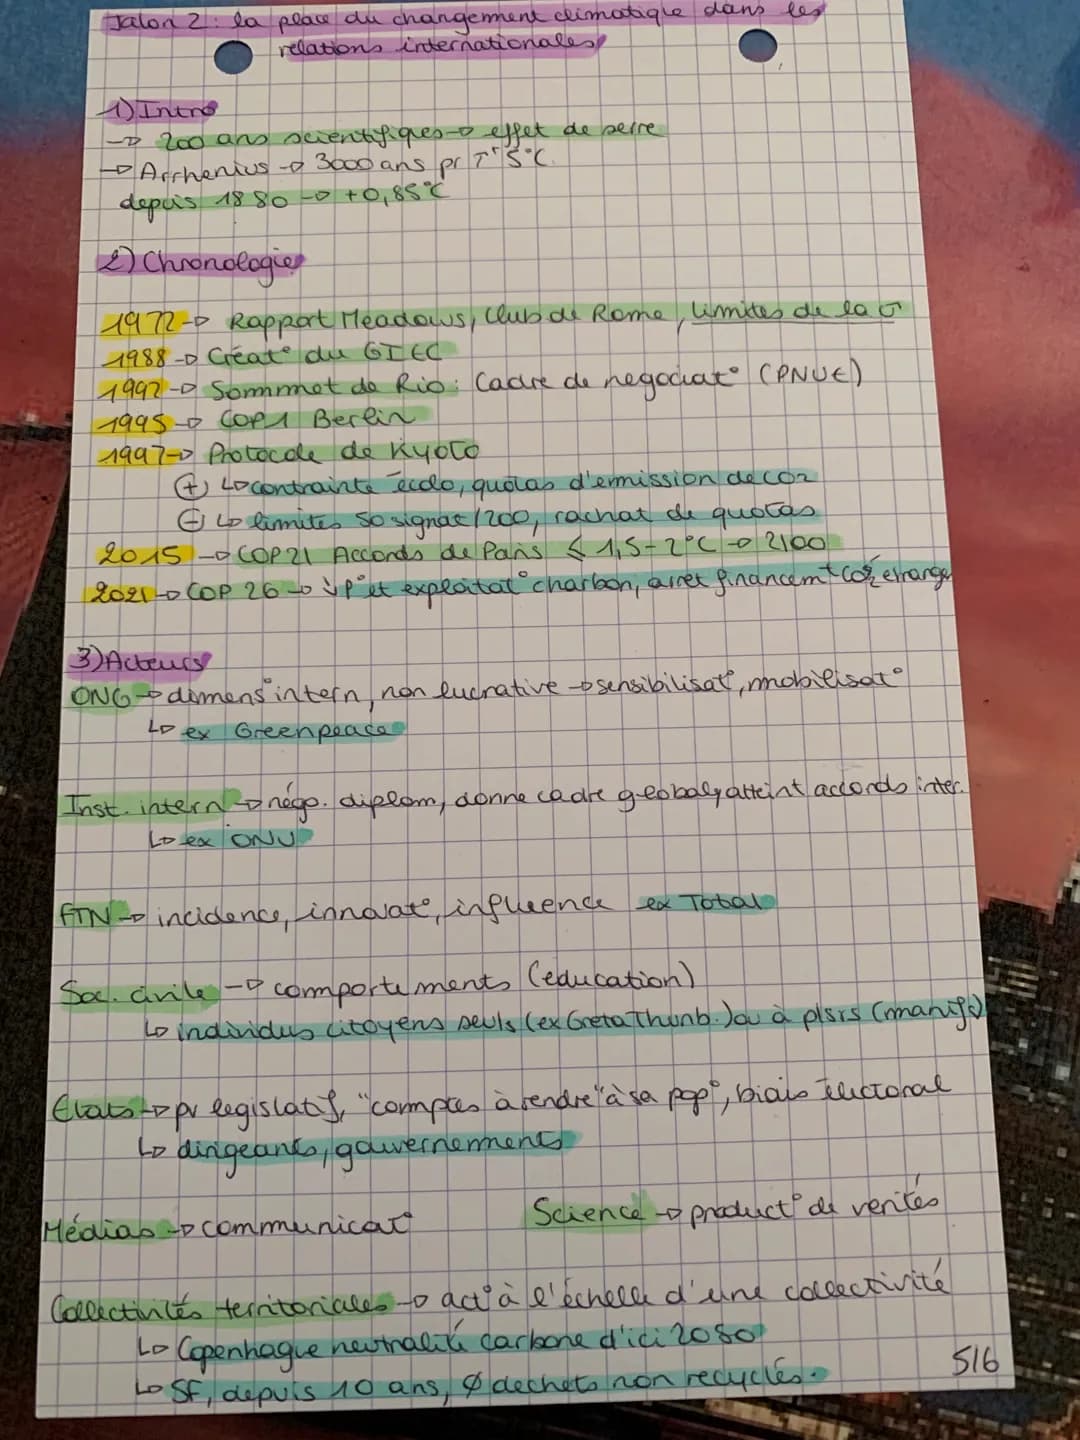 Jalon 2 : la place du changement climatique dans les
relations internationales
1) Intro
→ 200 ans scientifiques → effet de serre
→ Arrhenius → 3000 ans pr T° 5°C
depuis 1880 → +0,85°C
2) Chronologie
1972 → Rapport Meadows, Club de Rome, limites de la
1988 → Créat° du GIEC
1992 → Sommmet de Rio : Cadre de negociat° (PNUE)
1995 → COP1 Berlin
1997 → Protocole de Kyoto
(+) ↳ contrainte écolo, quotas d'émission de CO2
(-) ↳ limites 50 signat/200, rachat de quotas
2015 → COP21 Accords de Paris ≤ 1,5-2°C → 2100
2021 → COP 26 → ↓ P° et exploitat° charbon, arret financemt étranger
3) Acteurs
ONG → dimens° intern, non lucrative → sensibilisat°, mobilisat°
↳ ex Greenpeace
Inst. intern → négo. diplom, donne cadre global, atteint accords inter.
↳ ex ONU
FTN → incidence, innovat°, influence ex Total
Soc. civile → comportements (éducation)
↳ individus citoyens seuls (ex Greta Thunb.) ou à plsrs (manifs)
Etats → pv legislatif, "comptes à rendre" à sa pop°, biais électoral
↳ dirigeants, gouvernements
Médias → communicat°
Science → product° de verités
Collectivités territoriales → act° à l'échelle d'une collectivité
↳ Copenhague neutralité carbone d'ici 2050
↳ SF, depuis 10 ans, Ø dechets non recyclés.
5/6